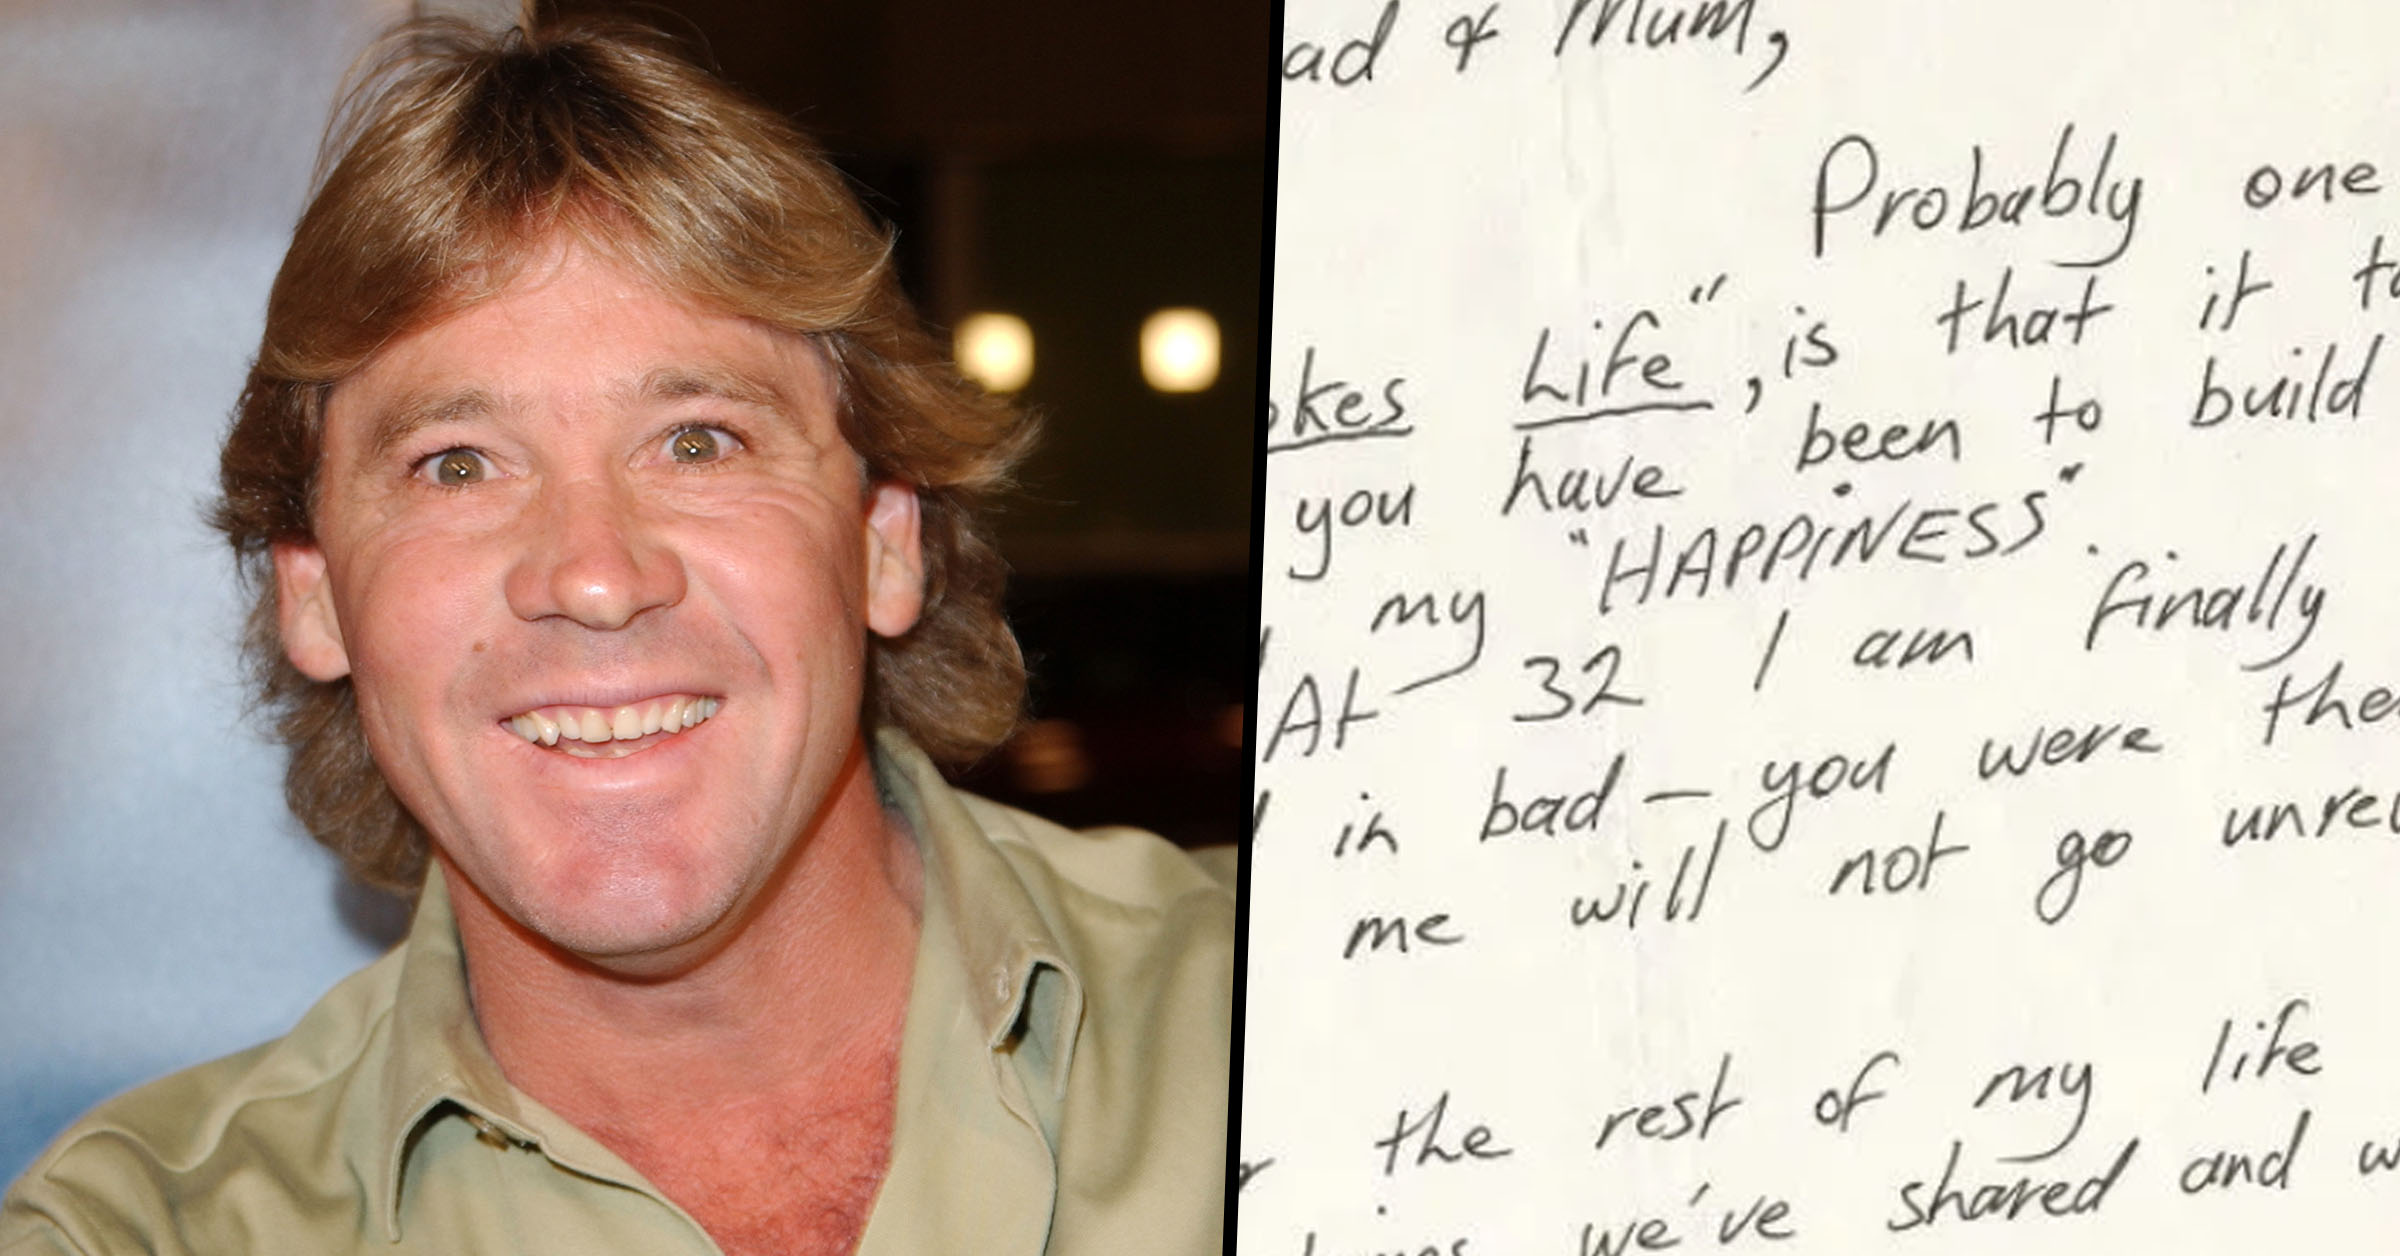 ad & Mum,
Probably one
kes Life", is that it
you have been to build
my "HAPPiNESS".
At 32 I am finally
in bad – you were the
me will not go unre
the rest of my life
we've shared and w